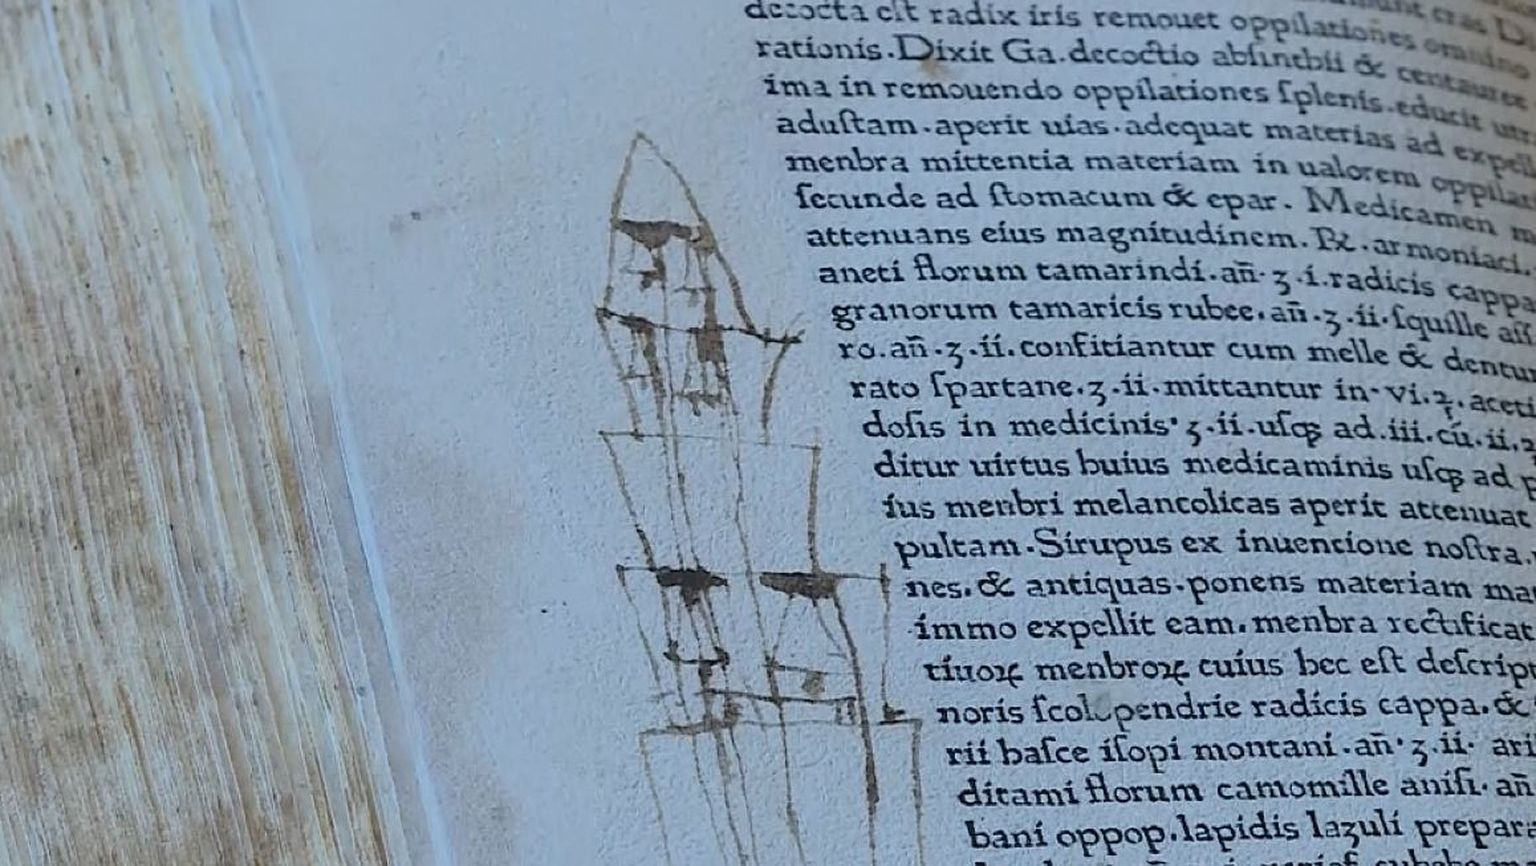 decocta est radix iris remouet oppilationes omnino
rationis. Dixit Ga. decoctio absinthii & centauree
ima in remouendo oppilationes ſplenis. educit
aduſtam. aperit uias. adequat materias ad expell
menbra mittentia materiam in ualorem oppilat
ſecunde ad ſtomacum & epar. Medicamen
attenuans eius magnitudinem. ℞. armoniaci.
aneti florum tamarindi. añ. ʒ. i. radicis cappa
granorum tamaricis rubee. añ. ʒ. ii. ſquille aſſ
ro. añ. ʒ. ii. confitiantur cum melle & dentur
rato ſpartane. ʒ. ii. mittantur in. vi. aceti
doſis in medicinis. ʒ. ii. uſqꝫ ad. iii. cú. ii.
ditur uirtus huius medicaminis uſqꝫ ad p
ius menbri melancolicas aperit attenuat
pultam. Sirupus ex inuencione noſtra.
nes. & antiquas. ponens materiam mat
immo expellit eam. menbra rectificat
tiuoꝝ menbroꝝ cuius hec eſt deſcript
noris ſcolopendrie radicis cappa. &
rii baſce iſopi montani. añ. ʒ. ii. ari
ditami florum camomille aniſi. añ
bani oppop. lapidis lazuli prepara